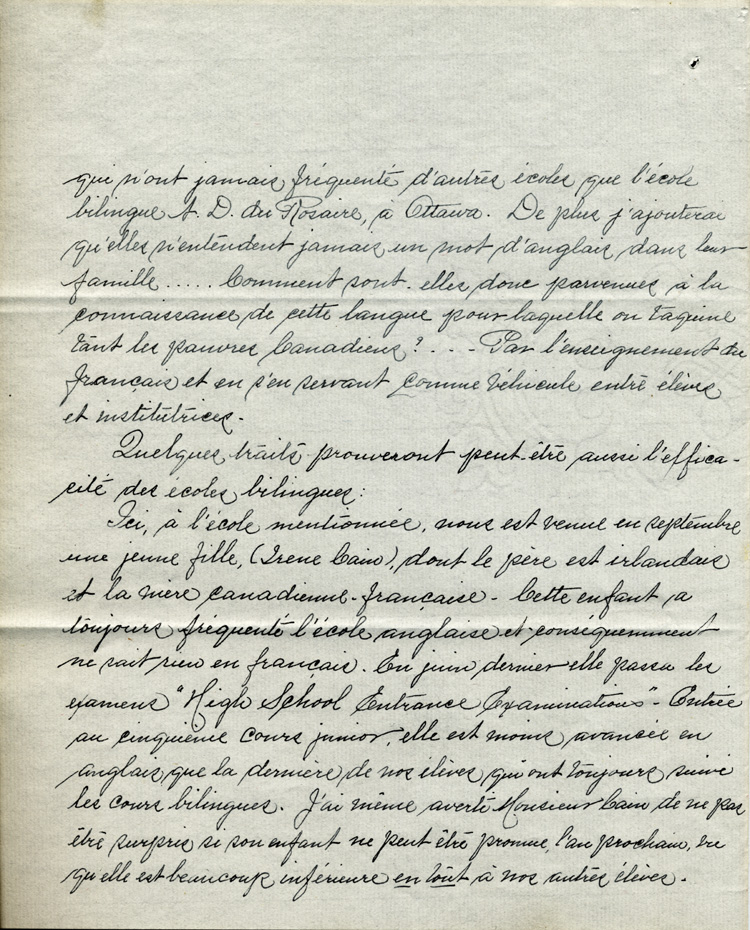 qui n'ont jamais fréquenté d'autres écoles que l'école
bilingue N. D. du Rosaire, à Ottawa. De plus j'ajouterai
qu'elles n'entendent jamais un mot d'anglais dans leur
famille ..... Comment sont-elles donc parvenues à la
connaissance de cette langue pour laquelle on taquine
tant les pauvres Canadiens? ... Par l'enseignement du
français et en s'en servant comme véhicule entre élèves
et institutrices.
Quelques traits prouveront peut-être aussi l'effica-
cité des écoles bilingues:
Ici, à l'école mentionnée, nous est venue en septembre
une jeune fille, (Irene Cain), dont le père est irlandais
et la mère canadienne-française - Cette enfant a
toujours fréquenté l'école anglaise et conséquemment
ne sait rien en français. En juin dernier elle passa les
examens "High School Entrance Examinations" - Entrée
au cinquième cours junior, elle est moins avancée en
anglais que la dernière de nos élèves qui ont toujours suivi
les cours bilingues. J'ai même averti Monsieur Cain de ne pas
être surpris si son enfant ne peut être promue, l'an prochain, vu
qu'elle est beaucoup inférieure en tout à nos autres élèves.